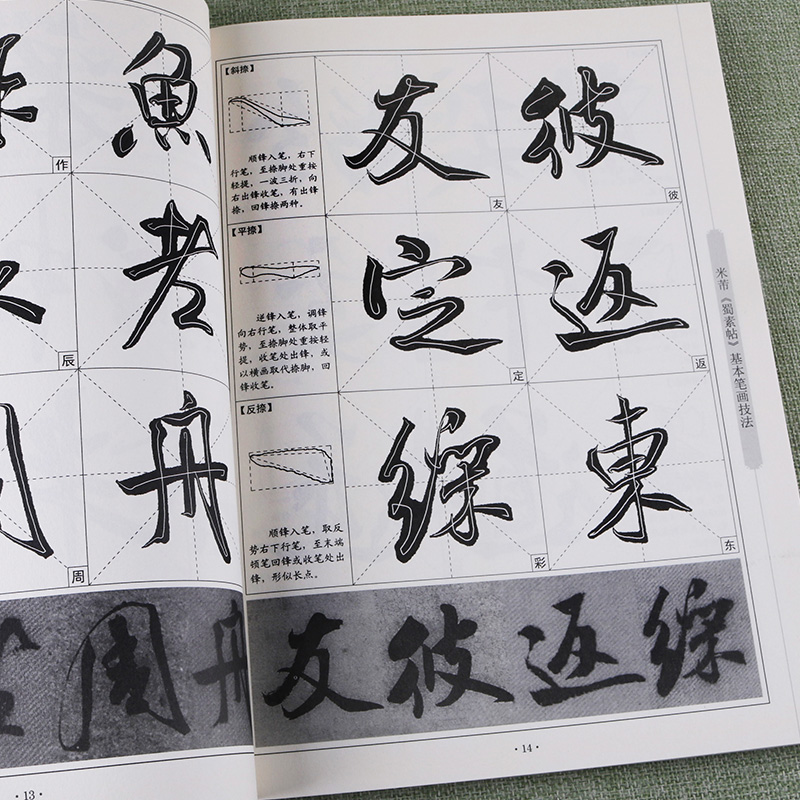 魚
作
老
辰
周
舟
周
周 舟
·13·
【斜捺】
顺锋入笔，右下
行笔，至捺脚处重按
轻提，一波三折，向
右出锋收笔，有出锋
捺，回锋捺两种。
友 彼
友 彼
【平捺】
逆锋入笔，调锋
向右行笔，整体取平
势，至捺脚处重按轻
提，收笔处出锋，或
以横画取代捺脚，回
锋收笔。
定 返
定 返
【反捺】
顺锋入笔，取反
势右下行笔，至末端
领笔回锋或收笔处出
锋，形似长点。
綵 東
彩 东
友 彼 返 綵
米芾《蜀素帖》基本笔画技法
·14·